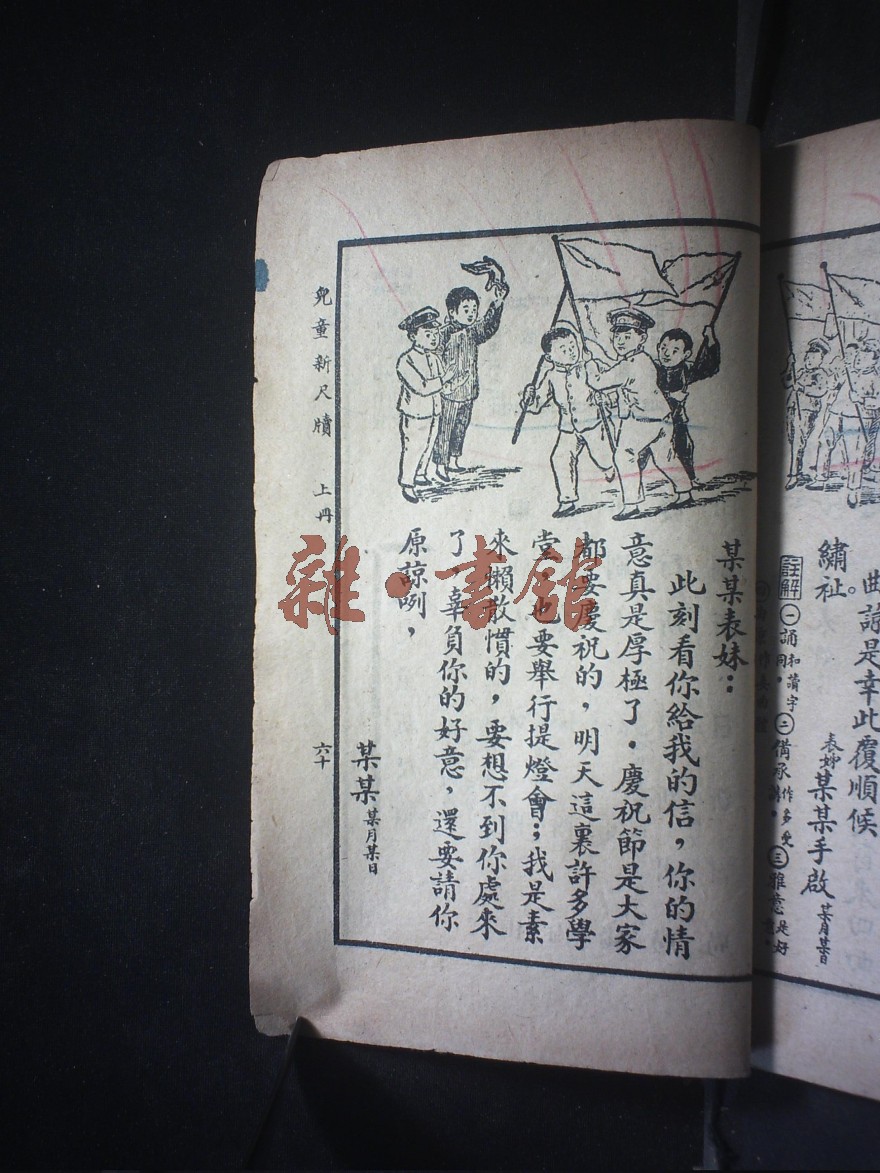 曲諒是幸此覆順候
繡祉。
表妙某某手啟 某月某日
註解 ㊀誦和讀字同。㊁備承作多受講。㊂雅意是好意。
某某表妹：
此刻看你給我的信，你的情
意真是厚極了．慶祝節是大家
都要慶祝的，明天這裏許多學
堂，也要舉行提燈會；我是素
來懶散慣的，要想不到你處來
了，辜負你的好意，還要請你
原諒咧，
某某 某月某日
兒童新尺牘 上冊
六十
雜·書館